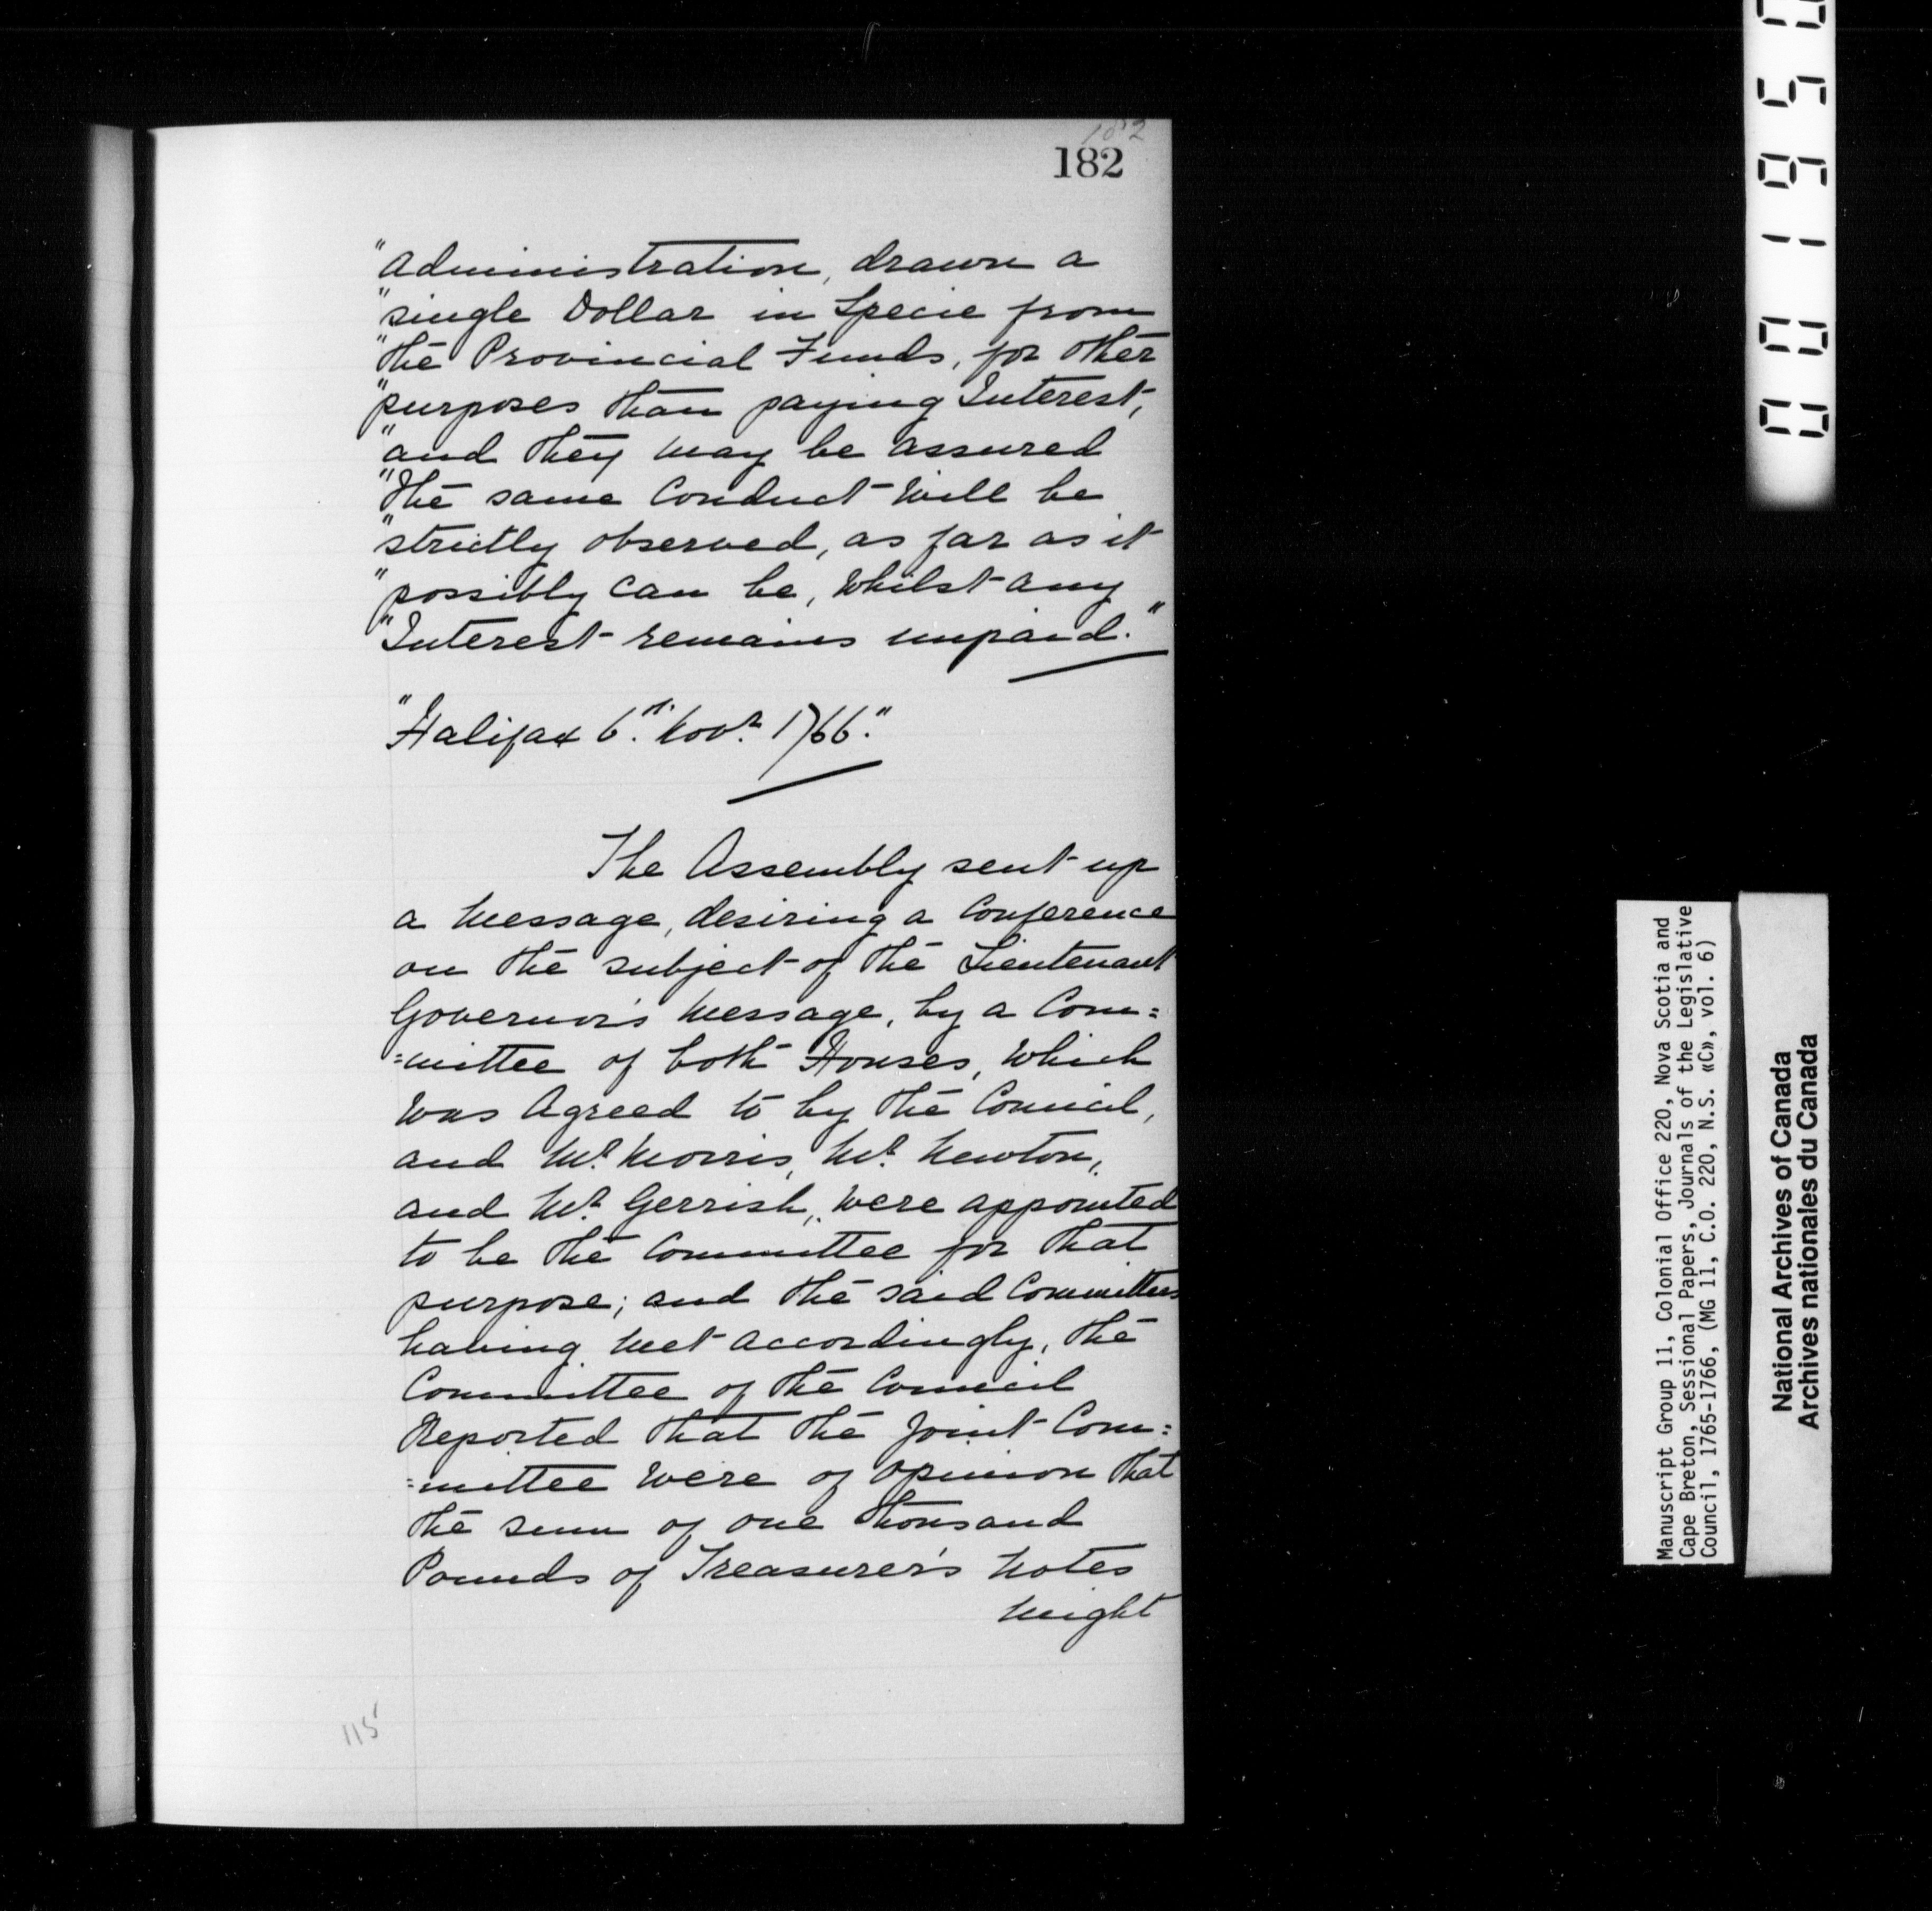 182
182
"Administration, drawn a
"single Dollar in Specie from
"the Provincial Funds, for other
"purposes than paying Interest,
"and they may be assured
"the same Conduct will be
"strictly observed, as far as it
"possibly can be, whilst any
"Interest remains unpaid."
"Halifax 6th. Novr. 1766."
The Assembly sent up
a Message, desiring a Conference
on the subject of the Lieutenant
Governor's Message, by a Com=
=mittee of both Houses, which
was Agreed to by the Council,
and Mr. Morris, Mr. Newton,
and Mr. Gerrish, were appointed
to be the Committee for that
purpose; and the said Committees
having met accordingly, the
Committee of the Council
Reported that the Joint Com=
=mittee were of opinion that
the sum of one thousand
Pounds of Treasurer's Notes
might
115
Manuscript Group 11, Colonial Office 220, Nova Scotia and
Cape Breton, Sessional Papers, Journals of the Legislative
Council, 1765-1766, (MG 11, C.O. 220, N.S. «C», vol. 6)
National Archives of Canada
Archives nationales du Canada